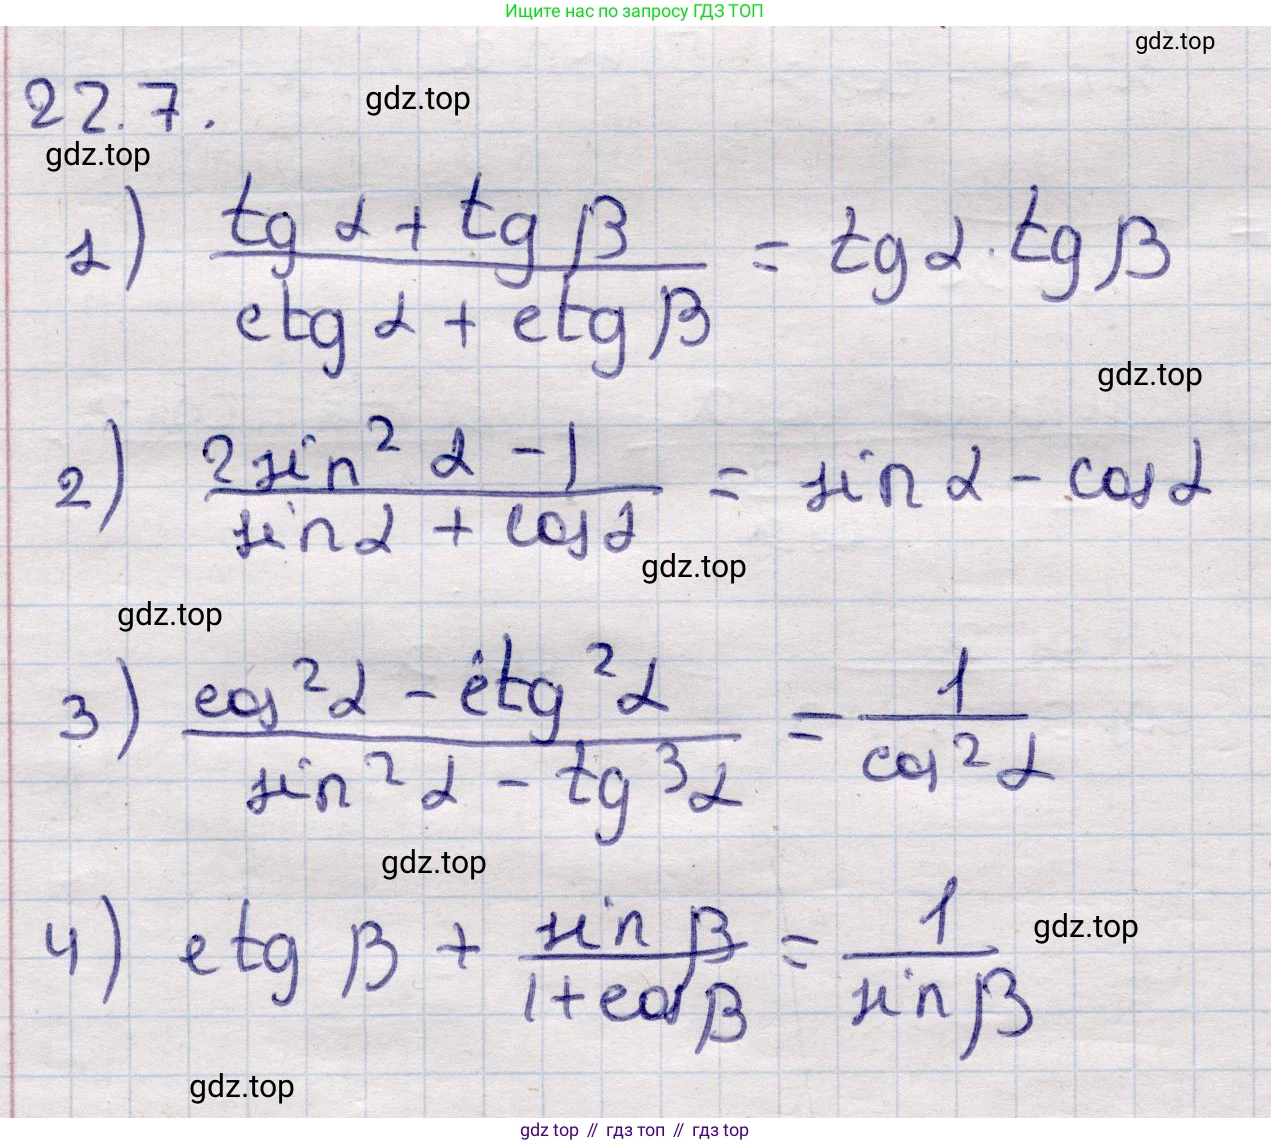 Ищите нас по запросу ГДЗ ТОП
gdz.top
22.7.
gdz.top
gdz.top
1) (tg α + tg β) / (ctg α + ctg β) = tg α · tg β
gdz.top
2) (2 sin² α - 1) / (sin α + cos α) = sin α - cos α
gdz.top
gdz.top
3) (cos² α - ctg² α) / (sin² α - tg³ α) = 1 / cos² α
gdz.top
4) ctg β + sin β / (1 + cos β) = 1 / sin β
gdz.top
gdz.top
gdz top // гдз топ // гдз top